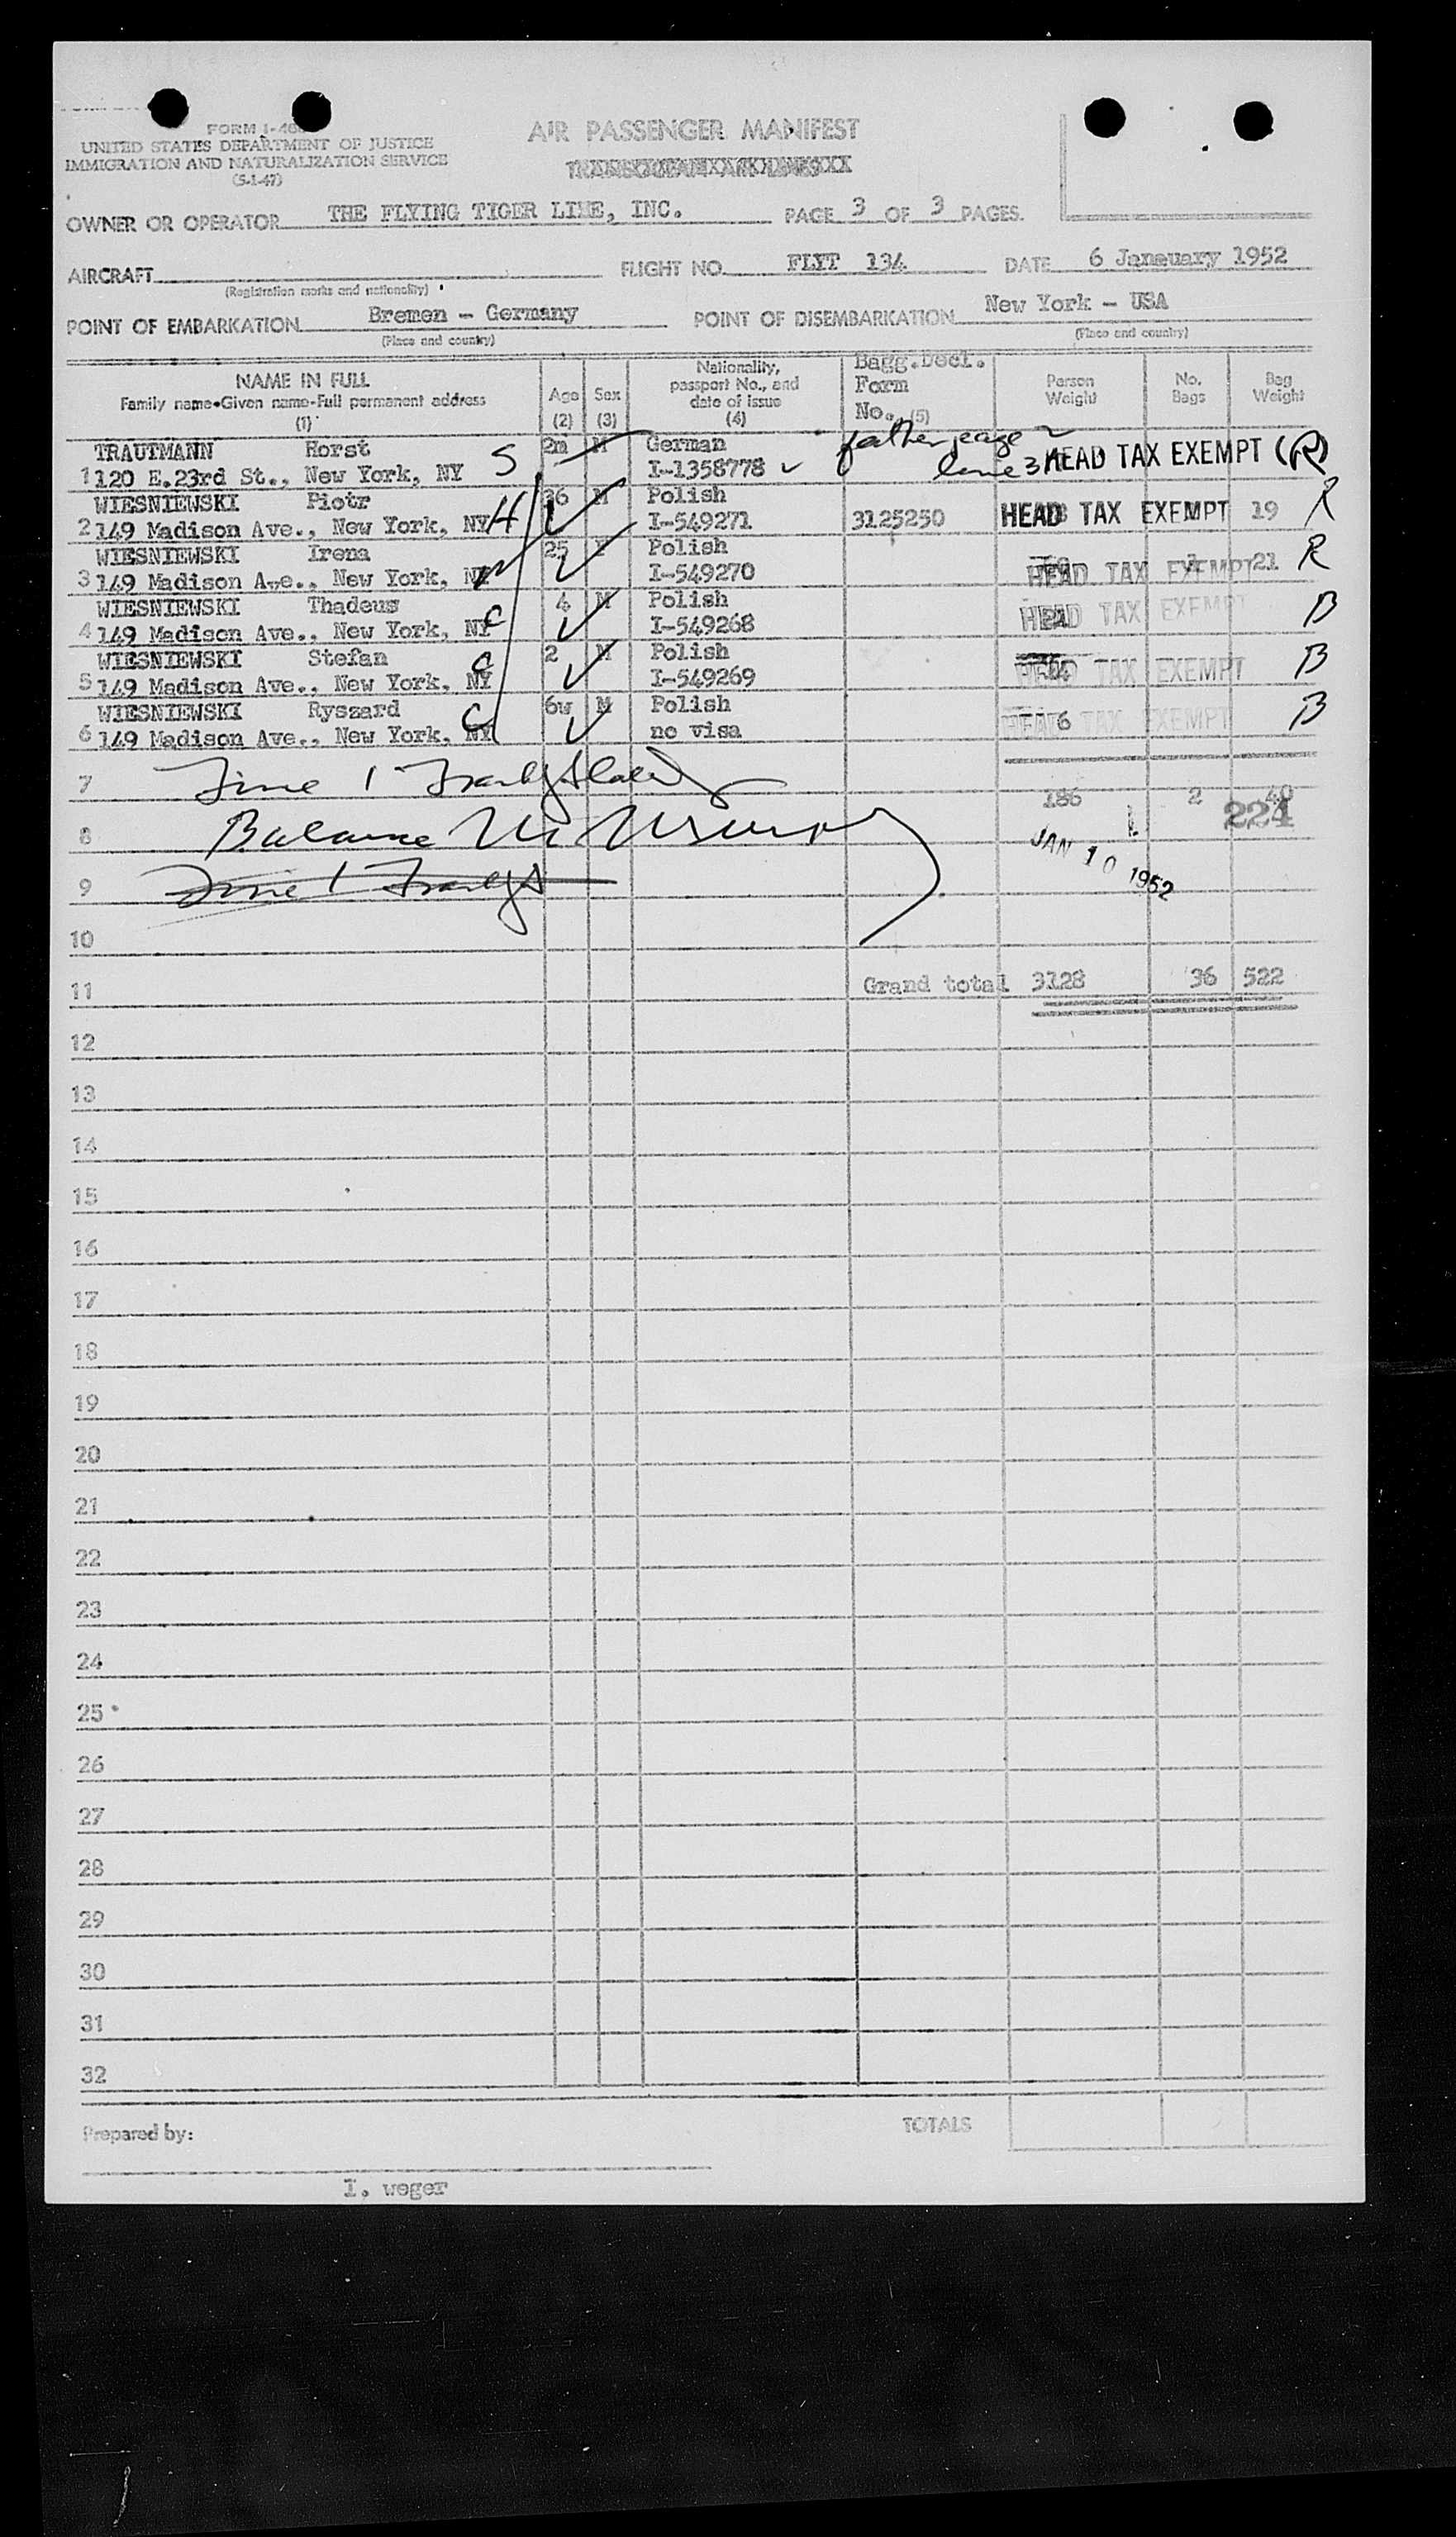 FORM I-466
UNITED STATES DEPARTMENT OF JUSTICE
IMMIGRATION AND NATURALIZATION SERVICE
(5-1-47)
AIR PASSENGER MANIFEST
OWNER OR OPERATOR THE FLYING TIGER LINE, INC. PAGE 3 OF 3 PAGES.
AIRCRAFT FLIGHT NO. FLYT 134 DATE 6 Janeuary 1952
(Registration marks and nationality)
POINT OF EMBARKATION Bremen - Germany POINT OF DISEMBARKATION New York - USA
(Place and country) (Place and country)
NAME IN FULL
Family name-Given name-Full permanent address
(1)
Age (2) Sex (3) Nationality, passport No., and date of issue (4) Bagg.Decl. Form No. (5) Person Weight No. Bags Bag Weight
TRAUTMANN Horst S 2m M German father page 2
1 120 E.23rd St., New York, NY I-1358778 line 3 HEAD TAX EXEMPT (R)
WIESNIEWSKI Piotr 36 M Polish
2 149 Madison Ave., New York, NY H I-549271 3125250 HEAD TAX EXEMPT 19 R
WIESNIEWSKI Irena 25 Polish
3 149 Madison Ave., New York, I-549270 HEAD TAX EXEMPT 21 R
WIESNIEWSKI Thadeus 4 M Polish
4 149 Madison Ave., New York, NY C I-549268 HEAD TAX EXEMPT B
WIESNIEWSKI Stefan C 2 M Polish
5 149 Madison Ave., New York, NY I-549269 HEAD TAX EXEMPT B
WIESNIEWSKI Ryszard C 6w M Polish
6 149 Madison Ave., New York, NY no visa HEAD TAX EXEMPT 6 B
7 Line 1
186 2 40
8 Balance 224
JAN 10 1952
9 Line 1
10
11 Grand total 3128 36 522
12
13
14
15
16
17
18
19
20
21
22
23
24
25
26
27
28
29
30
31
32
Prepared by: TOTALS
I. weger